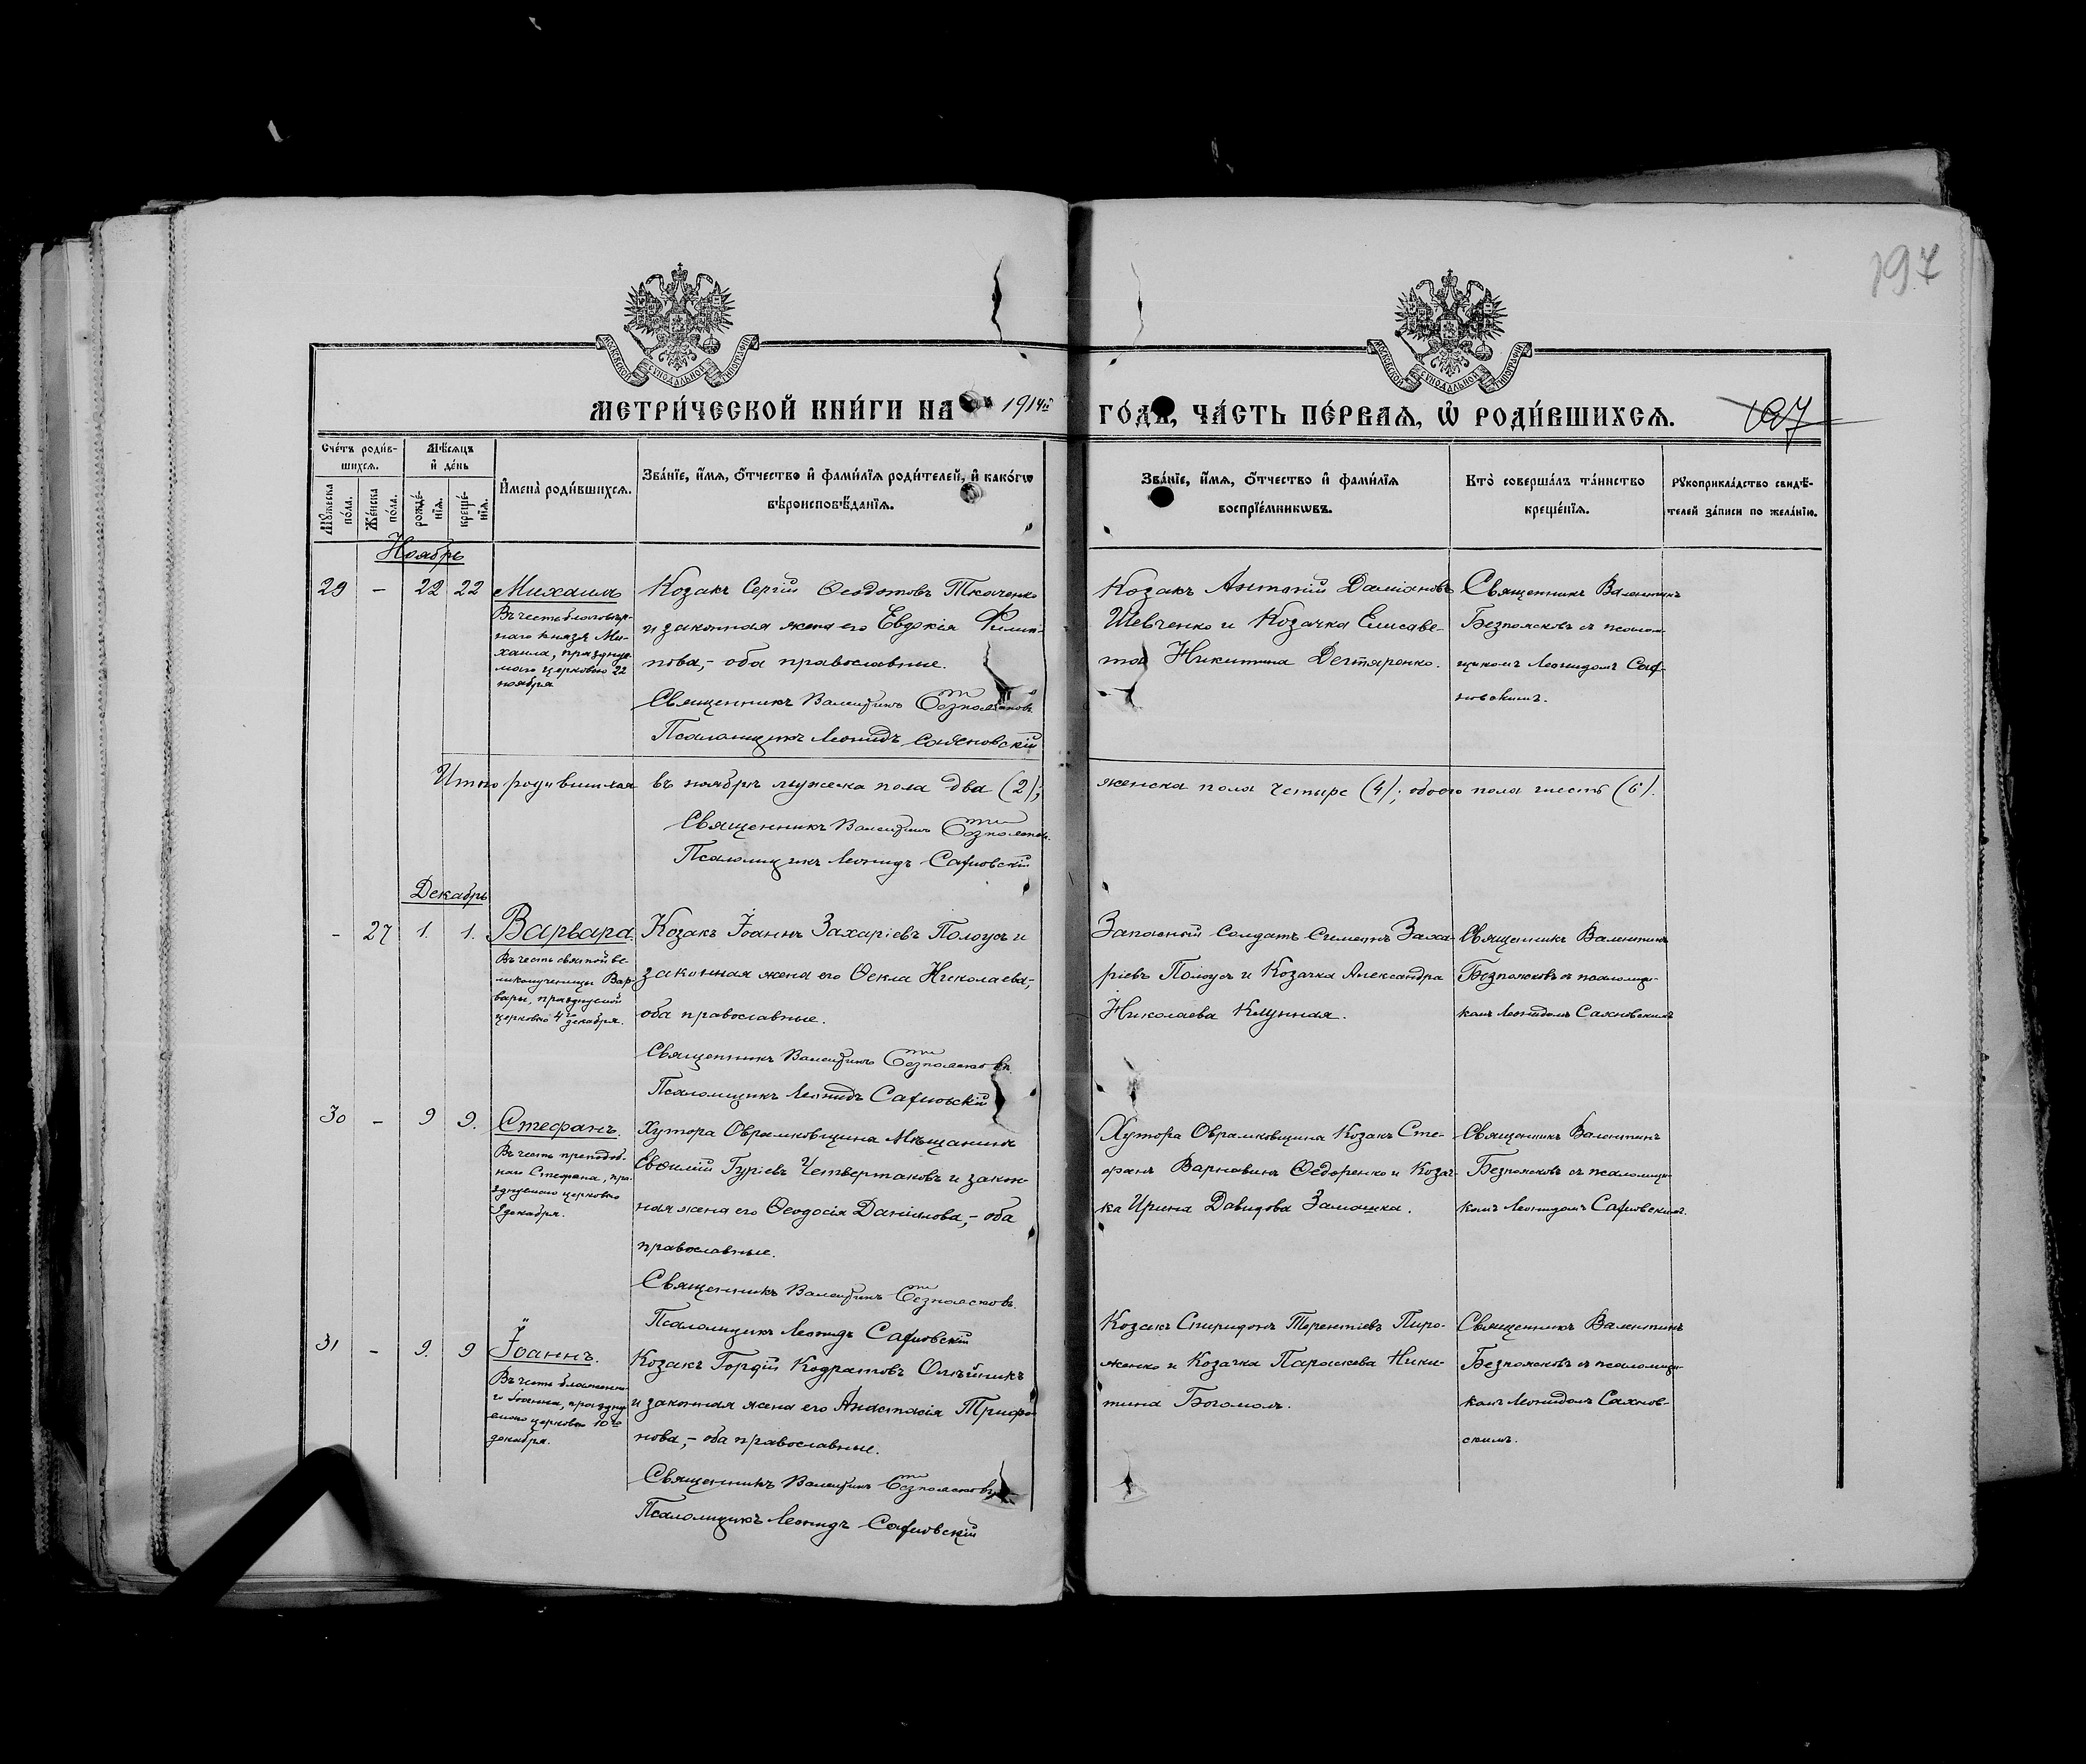 197
МОСКОВСКОЙ СѴНОДАЛЬНОЙ ТИПОГРАФІИ
МОСКОВСКОЙ СѴНОДАЛЬНОЙ ТИПОГРАФІИ
МЕТРИ́ЧЕСКОЙ КНИ́ГИ НА 1914й
ГО́ДЪ, ЧА́СТЬ ПЕ́РВАѦ, Ѡ҆ РОДИ́ВШИХСѦ.
107
Сче́тъ роди́в-
шихсѧ.
Мѣ́сѧцъ
и҆ де́нь
Мꙋ́жеска
по́ла.
Же́нска
по́ла.
рожде́-
нїѧ.
креще́-
нїѧ.
И҆мена̀ роди́вшихсѧ.
Зва́нїе, и҆́мѧ, ѻ҆́тчество и҆ фами́лїѧ роди́телей, и҆ како́гѡ
вѣроисповѣ́данїѧ.
Зва́нїе, и҆́мѧ, ѻ҆́тчество и҆ фами́лїѧ
воспрїе́мникѡвъ.
Кто̀ соверша́лъ та́инство
креще́нїѧ.
Рꙋкоприкла́дство свидѣ́-
телей за́писи по жела́нїю.
Ноябрь
29 - 22 22 Михаилъ
Въ честь благовѣр-
наго князя Ми-
хаила, празднуе-
маго церковію 22
ноября
Козакъ Сергій Ѳеодотовъ Ткаченко
и законная жена его Евдокія Филип-
пова,- оба православные.
Священникъ Валентинъ Безпоясковъ
Псаломщикъ Леонидъ Сахновскій
Козакъ Антоній Даміановъ
Шевченко и Козачка Елисаве-
та Никитина Дегтяренко.
Священникъ Валентинъ
Безпоясковъ съ псалом-
щикомъ Леонидомъ Сах-
новскимъ.
Итого родившихся въ ноябрѣ мужеска пола два (2);
женска пола четыре (4); обоего пола шесть (6).
Священникъ Валентинъ Безпоясков.
Псаломщикъ Леонидъ Сахновскій
Декабрь
- 27 1. 1. Варвара.
Въ честь святой ве-
ликомученицы Вар-
вары, празднуемой
церковію 4го декабря.
Козакъ Іоаннъ Захаріевъ Полоусъ и
законная жена его Ѳекла Николаева,-
оба православные.
Священникъ Валентинъ Безпоясковъ.
Псаломщикъ Леонидъ Сахновскій
Запасный солдатъ Симеонъ Заха-
ріевъ Полоусъ и Козачка Александра
Николаева
Священникъ Валентинъ
Безпоясковъ съ псаломщи-
комъ Леонидомъ Сахновскимъ
30 - 9 9. Стефанъ.
Въ честь преподоб-
наго Стефана, пра-
зднуемаго церковію
9 декабря.
Хутора Оврамковщина Мѣщанинъ
Евѳимій Гуріевъ Четвертаковъ и закон-
ная жена его Ѳеодосія Даніилова,- оба
православные.
Священникъ Валентинъ Безпоясковъ.
Псаломщикъ Леонидъ Сахновскій
Хутора Оврамковщина Козакъ Сте-
фанъ Варнавинъ Ѳедоренко и Козач-
ка Ирина Давидова Замошка.
Священникъ Валентинъ
Безпоясковъ съ псаломщи-
комъ Леонидомъ Сахновскимъ.
31 - 9. 9 Іоаннъ.
Въ честь блаженна-
го Іоанна, праздну-
емаго церковію 10го
декабря.
Козакъ Гордій Кодратовъ Олѣйникъ
и законная жена его Анастасія Трифо-
нова,- оба православные.
Священникъ Валентинъ Безпоясковъ
Псаломщикъ Леонидъ Сахновскій
Козакъ Спиридонъ Терентіевъ Пиро-
женко и Козачка Параскева Ники-
тина Богомолъ.
Священникъ Валентинъ
Безпоясковъ съ псаломщи-
комъ Леонидомъ Сахнов-
скимъ.